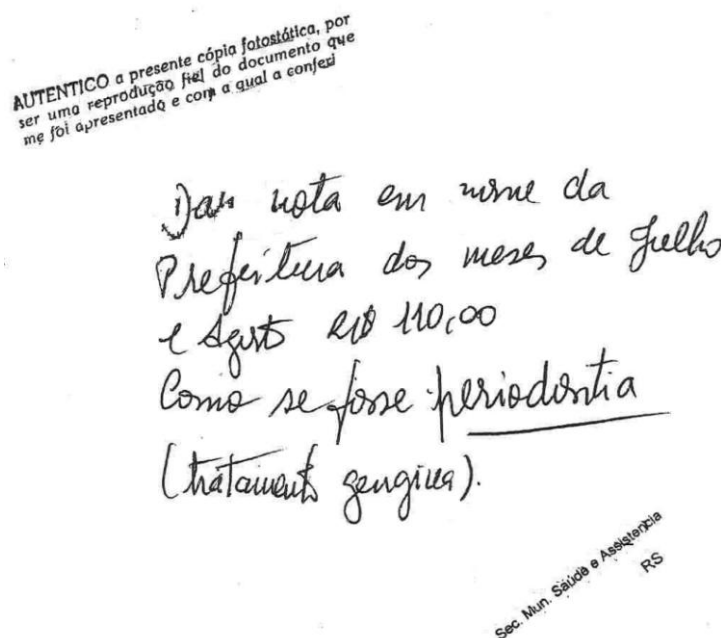 AUTENTICO a presente cópia fotostática, por
ser uma reprodução fiel do documento que
me foi apresentado e com a qual a conferi
Dar nota em nome da
Prefeitura dos meses de Julho
e Agosto R$ 110,00
Como se fosse periodontia
(tratamento gengiva).
Sec. Mun. Saúde e Assistencia
RS